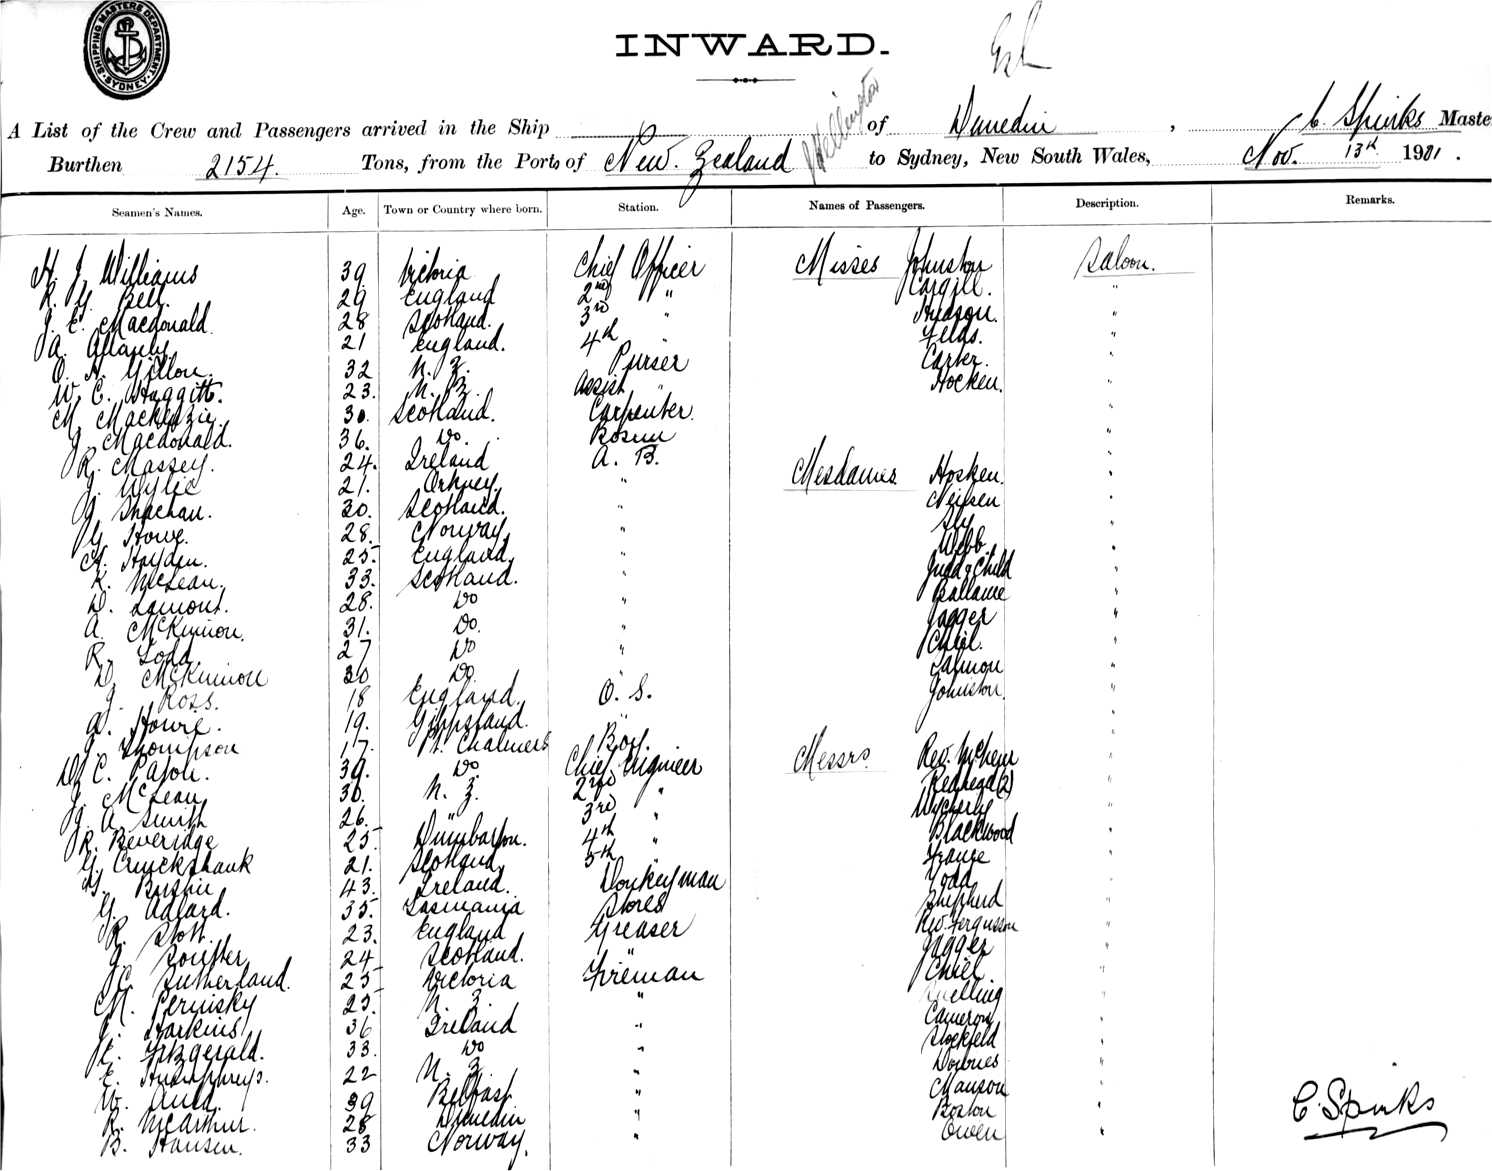 SHIPPING MASTERS DEPARTMENT SYDNEY
INWARD.
A List of the Crew and Passengers arrived in the Ship Wellington of Dunedin, C. Spinks Maste
Burthen 2154. Tons, from the Ports of New. Zealand to Sydney, New South Wales, Nov. 13th 1901.
Seamen's Names. Age. Town or Country where born. Station. Names of Passengers. Description. Remarks.
H. J. Williams 39 Victoria Chief Officer Misses Johnston Saloon.
R. Y. Bell. 29 England 2nd " Cargill. "
J. E. Macdonald. 28 Scotland. 3rd " Hudson. "
A. Allanby 21 England. 4th " Fields. "
O. H. Gillon. 32 N. Z. Purser Carter. "
W. C. Haggitt. 23. N. Z. Assist " Hocken. "
M. Mackenzie. 30. Scotland. Carpenter. "
J. Macdonald. 36. Do. Bosun "
R. Massey. 24. Ireland A. B. "
J. Wylie 21. Orkney. " Mesdames Hosken. "
J. Strachan. 30. Scotland. " Neilsen "
G. Howe. 28. Norway. " Sly "
A. Hayden. 25. England. " Webb. "
K. McLean. 33. Scotland. " Judd & Child "
D. Lamont. 28. Do " Ballance "
A. McKinnon. 31. Do. " Jagger "
R. Todd. 27 Do " Chiel. "
D. McKinnon 30 Do. " Salmon "
J. Ross. 18 England. O. S. Johnston. "
A. Howie. 19. Gippsland. " "
J. Thompson 17. Pt. Chalmers Boy. Messrs Rev. McCheur "
W. C. Paton. 39. Do. Chief Engineer (2) "
J. McLean 30. N. Z. 2nd " Wycherly "
J. A. Smith 26. " 3rd " Blackwood "
R. Beveridge 25 Dumbarton. 4th " France "
G. Cruickshank 21. Scotland 5th " Todd "
43. Ireland. Donkeyman Shepherd "
G. Adlard. 35. Tasmania Stores Rev. Fergusson "
R. Stott. 23. England Greaser Jagger "
J. Soutter 24 Scotland. " Chiel "
C. Sutherland. 25 Victoria Fireman Snelling "
M. Perinsky 25. N. Z. " Cameron "
C. Harkins 36 Ireland " Stockfeld "
E. Fitzgerald. 33. Do " Downes "
E. Humphreys. 22 N. Z. " Manson "
W. Auld. 39 Belfast " Boston "
R. McArthur. 28 Dunedin " Owen "
B. Hansen. 33 Norway. "
C. Spinks